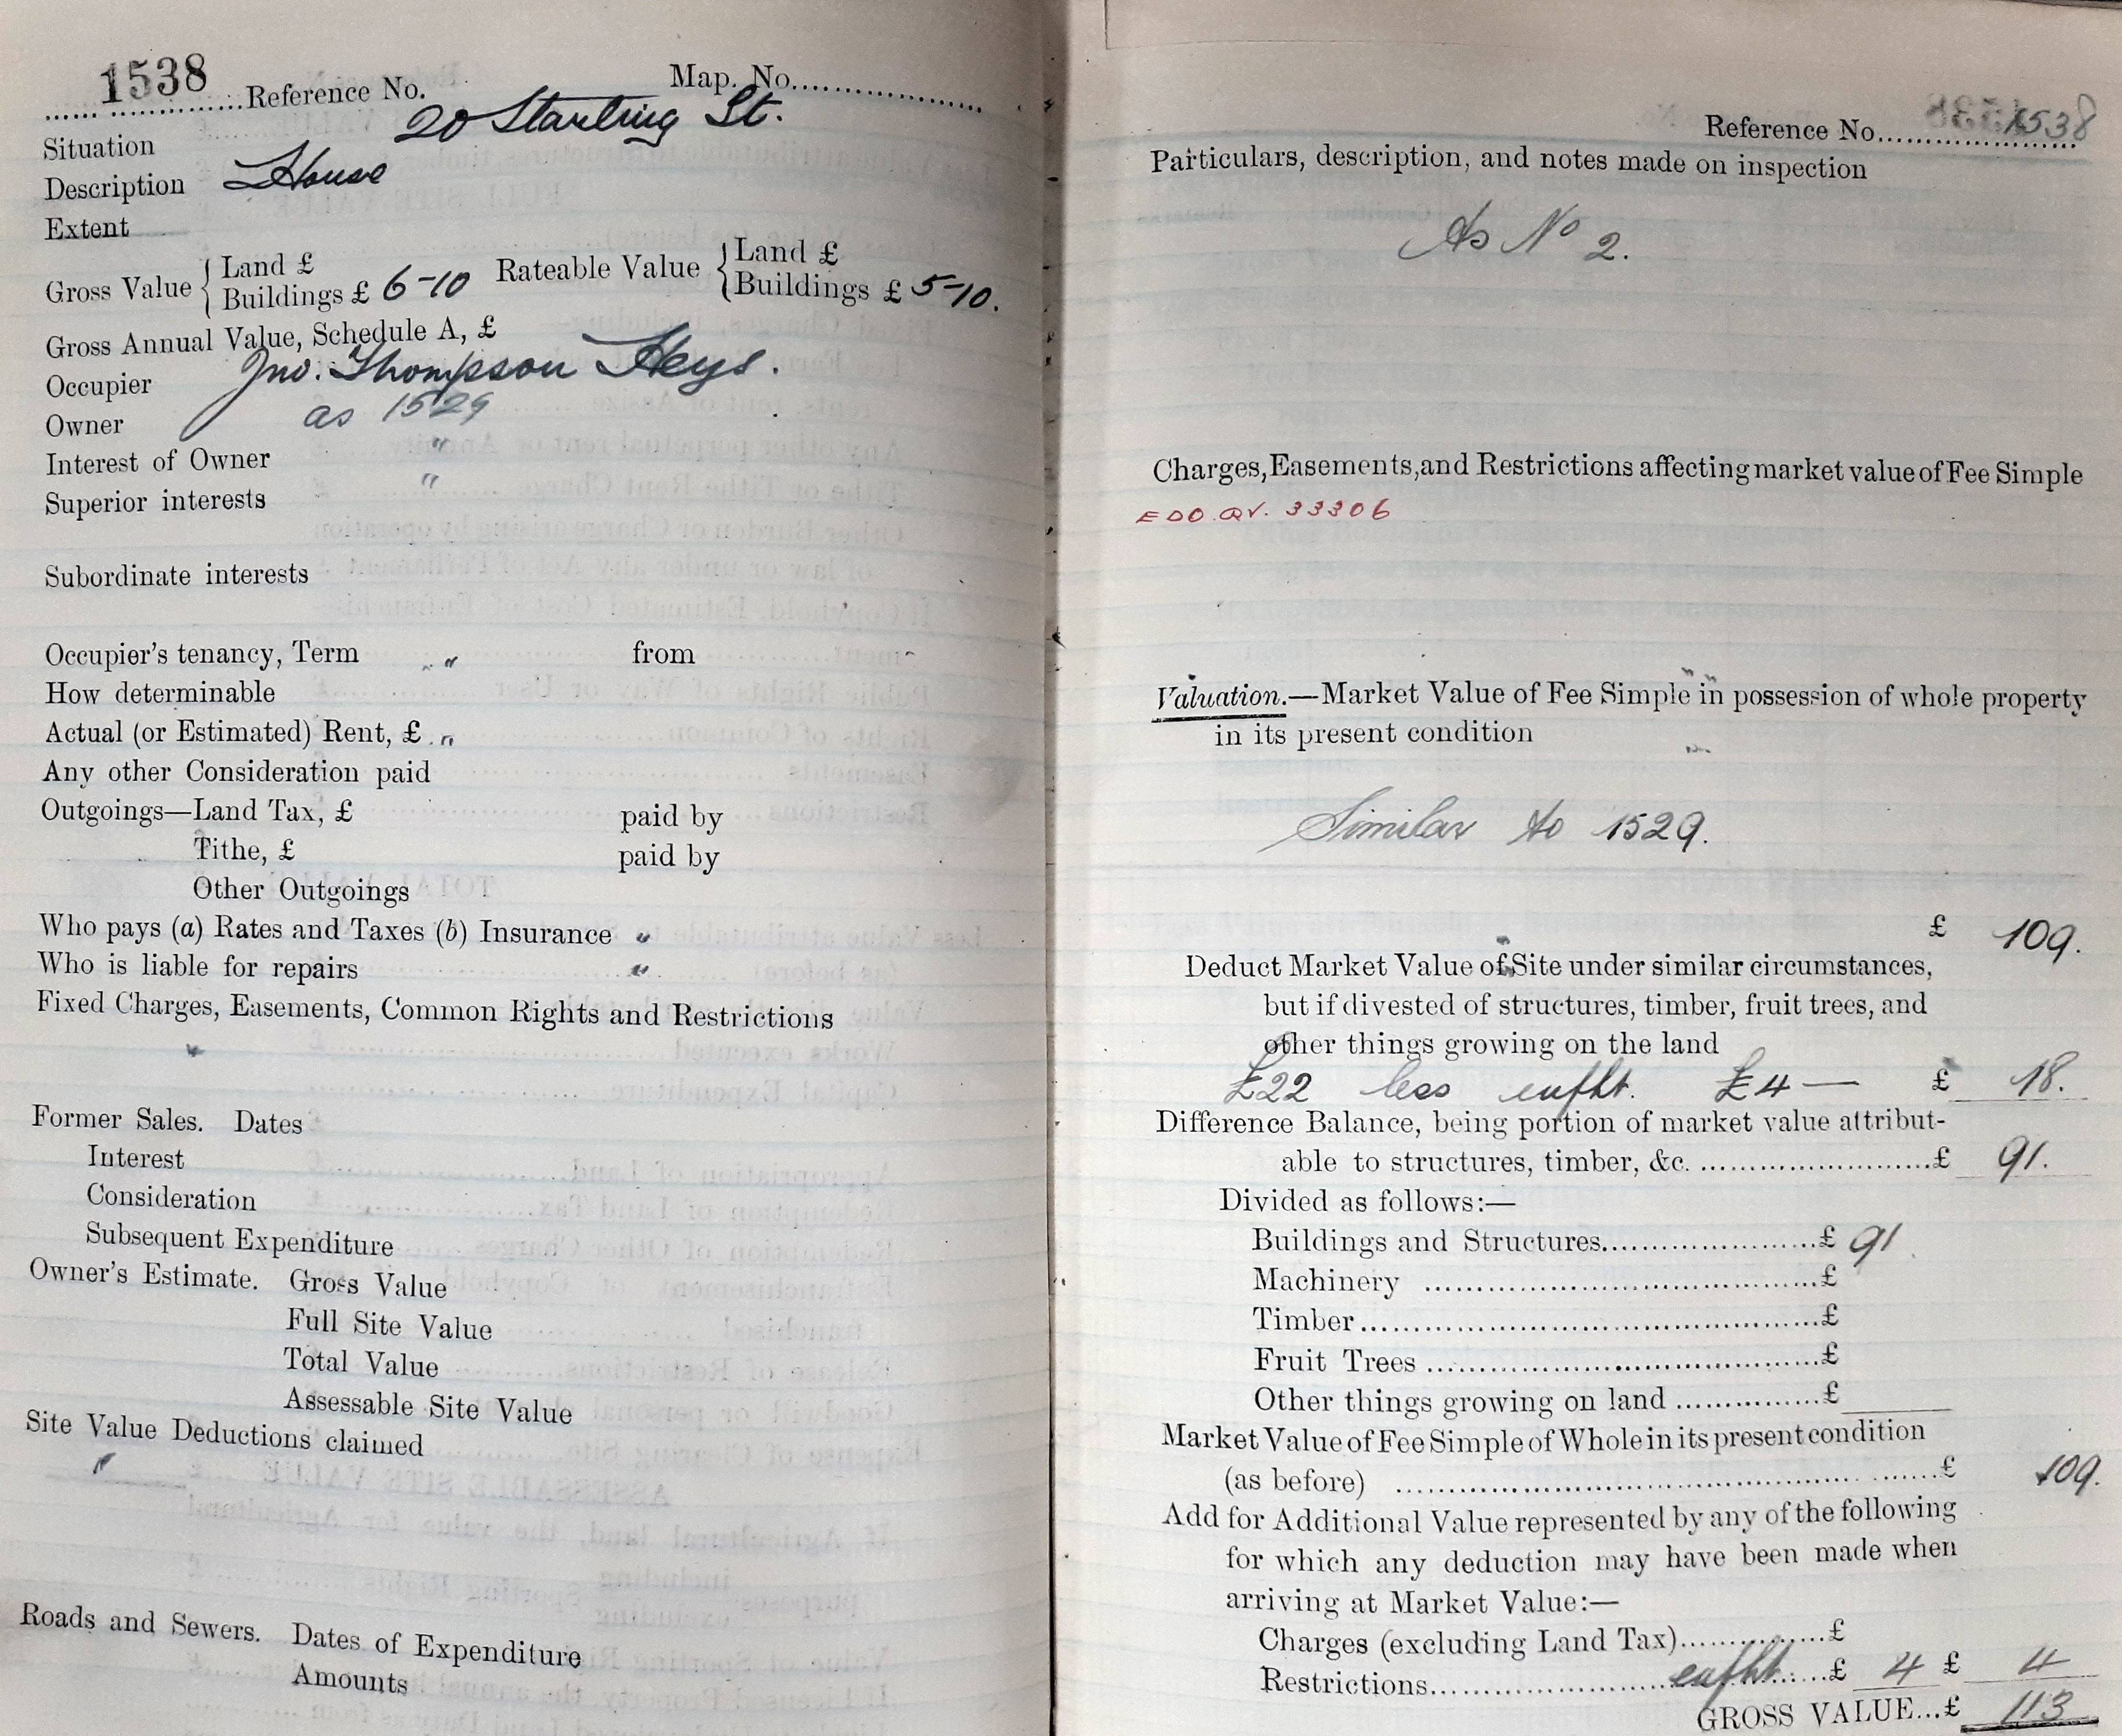 1538 Reference No. Map. No.
Situation 20 Starling St.
Description House
Extent
Gross Value { Land £ Rateable Value { Land £
Buildings £ 6-10 Buildings £ 5-10.
Gross Annual Value, Schedule A, £
Occupier Jno. Thompson Heys.
Owner as 1529
Interest of Owner "
Superior interests "
Subordinate interests
Occupier's tenancy, Term " from
How determinable
Actual (or Estimated) Rent, £ "
Any other Consideration paid
Outgoings—Land Tax, £ paid by
Tithe, £ paid by
Other Outgoings
Who pays (a) Rates and Taxes (b) Insurance "
Who is liable for repairs "
Fixed Charges, Easements, Common Rights and Restrictions
"
Former Sales. Dates
Interest
Consideration
Subsequent Expenditure
Owner's Estimate. Gross Value
Full Site Value
Total Value
Assessable Site Value
Site Value Deductions claimed
"
Roads and Sewers. Dates of Expenditure
Amounts
Reference No. 1538
Particulars, description, and notes made on inspection
As No 2.
Charges, Easements, and Restrictions affecting market value of Fee Simple
EDO. QV. 33306
Valuation.—Market Value of Fee Simple in possession of whole property
in its present condition
Similar to 1529.
£ 109.
Deduct Market Value of Site under similar circumstances,
but if divested of structures, timber, fruit trees, and
other things growing on the land
£22 less £4— £ 18.
Difference Balance, being portion of market value attribut-
able to structures, timber, &c. £ 91.
Divided as follows:—
Buildings and Structures £ 91.
Machinery £
Timber £
Fruit Trees £
Other things growing on land £
Market Value of Fee Simple of Whole in its present condition
(as before) £ 109.
Add for Additional Value represented by any of the following
for which any deduction may have been made when
arriving at Market Value:—
Charges (excluding Land Tax) £
Restrictions £ 4 £ 4
GROSS VALUE...£ 113